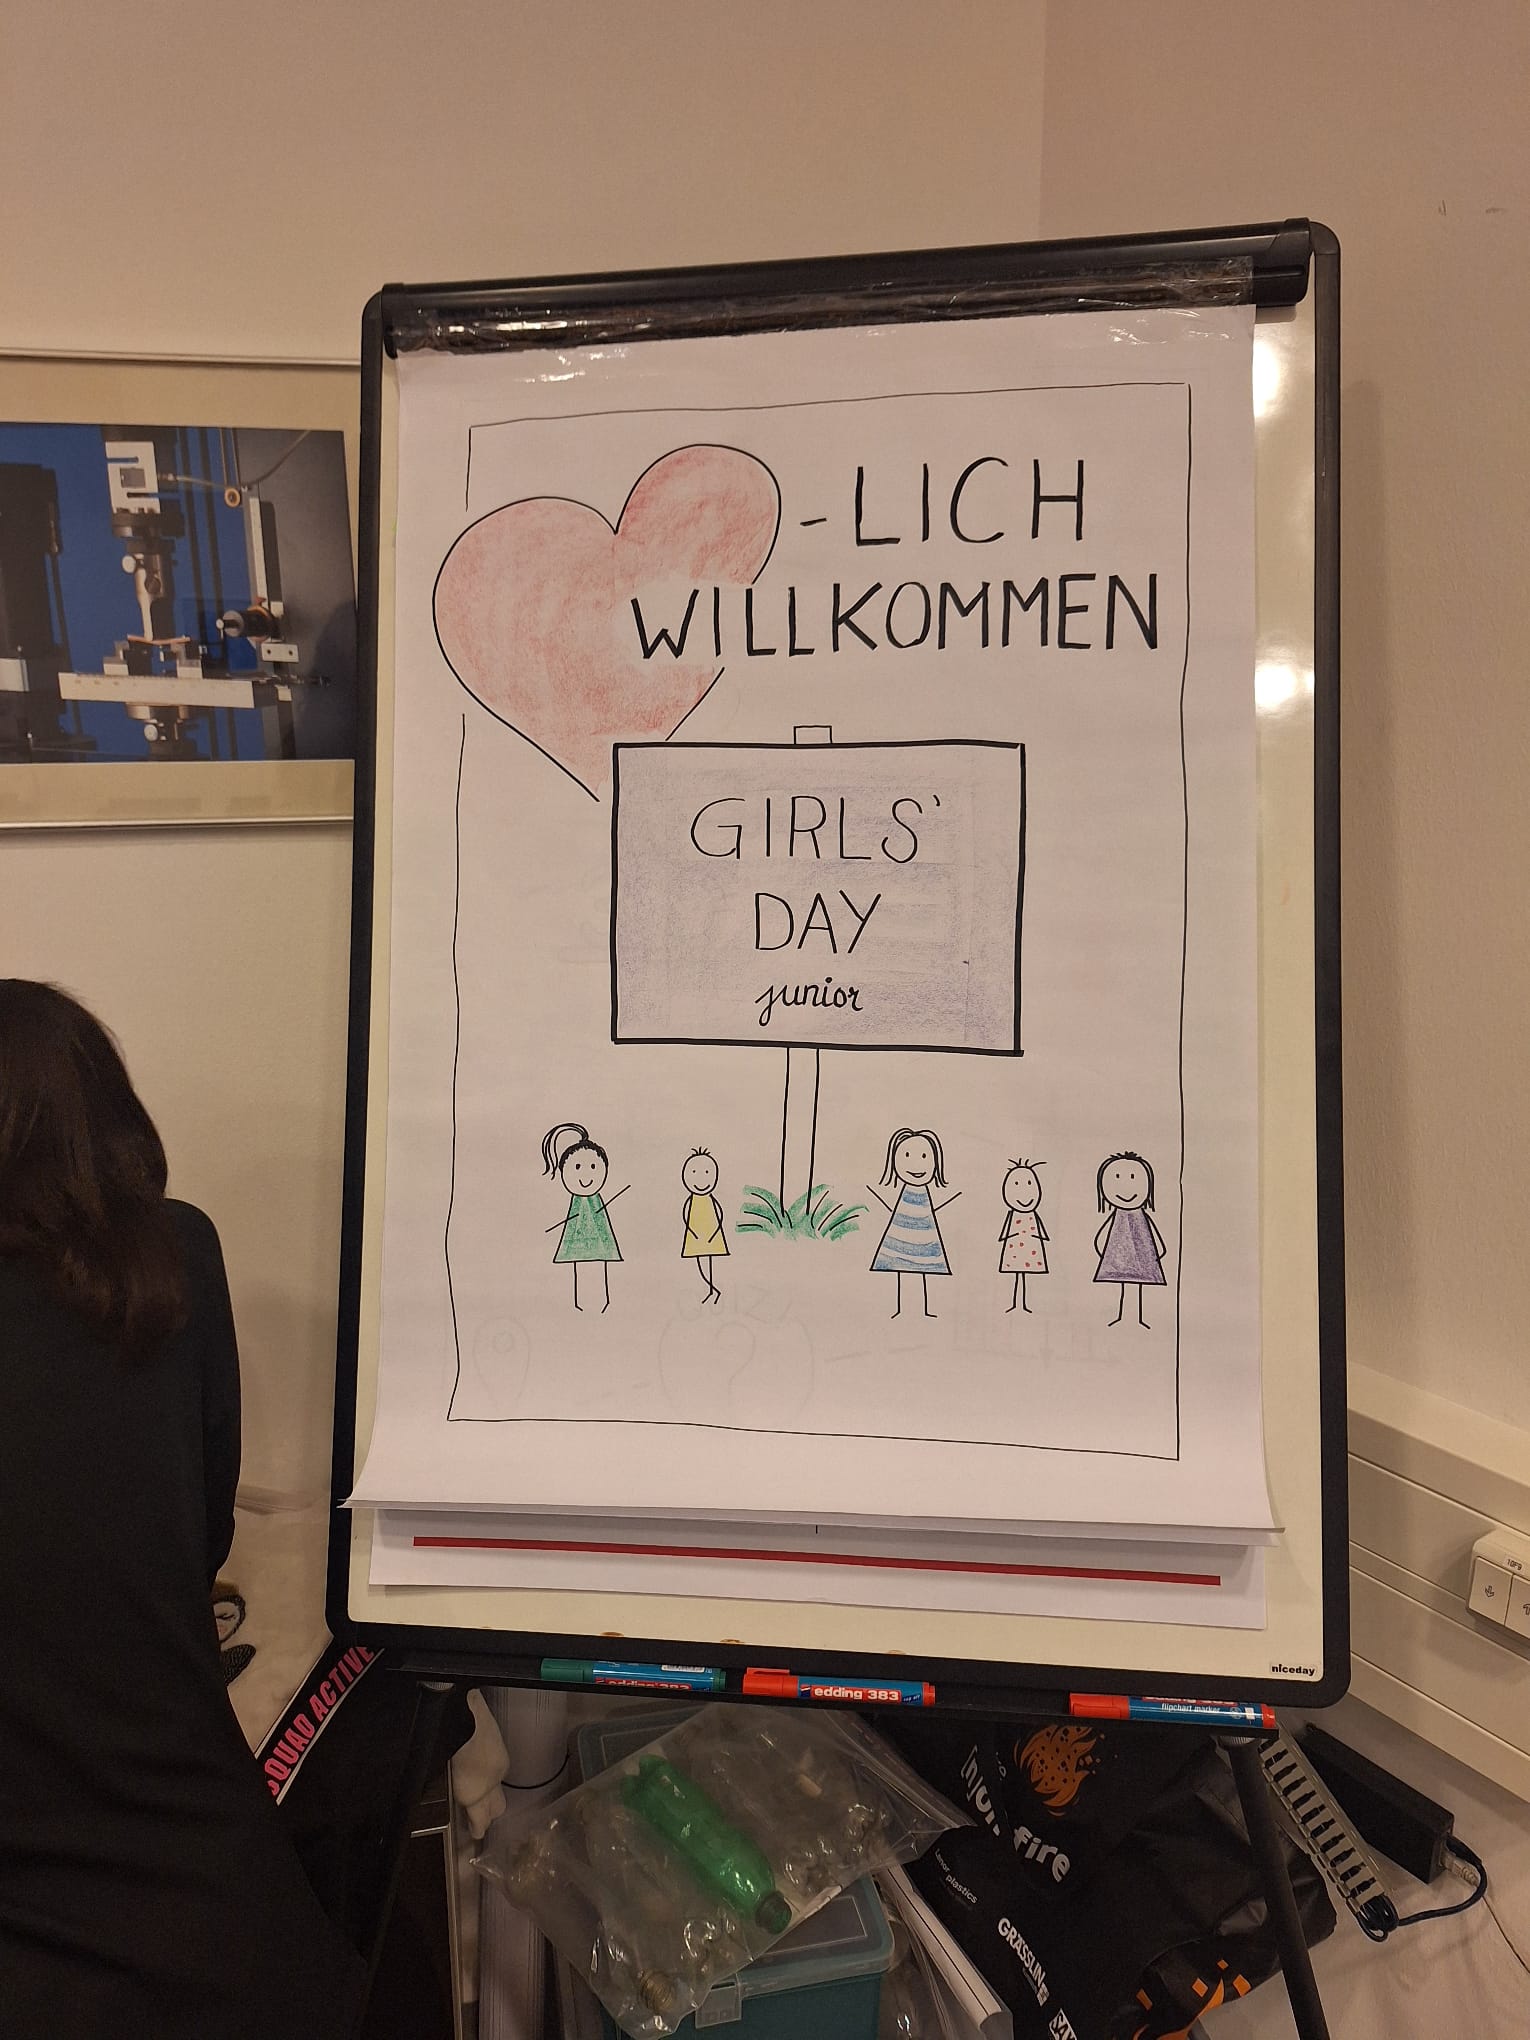 -LICH
WILLKOMMEN
GIRLS'
DAY
junior
niceday
edding 383
edding 383
flipchart marker
SQUAD ACTIVE
fire
plastics
GRÄSSLIN